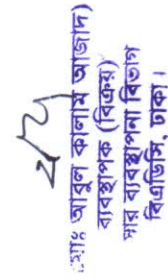 মোঃ আবুল কালাম আজাদ)
ব্যবস্থাপক (বিক্রয়)
সার ব্যবস্থাপনা বিভাগ
বিএডিসি, ঢাকা।